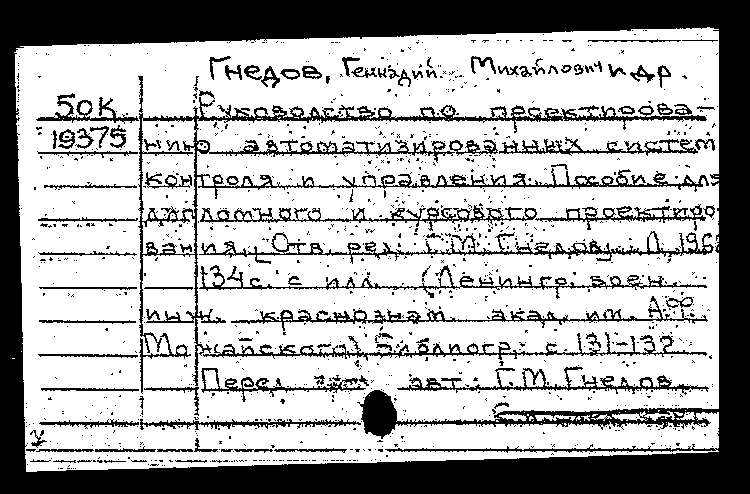 Гнедов, Геннадий Михайлович и др.
50К Руководство по проектирова-
19375 нию автоматизированных систем
контроля и управления. Пособие для
дипломного и курсового проектиро
вания. [Отв. ред.: Г.М. Гнедов]. Л, 196
134с. с илл. (Ленингр. воен.
инж. краснознам. акад. им. А.Ф.
Можайского) Библиогр.: с. 131-132
Перед авт.: Г.М. Гнедов